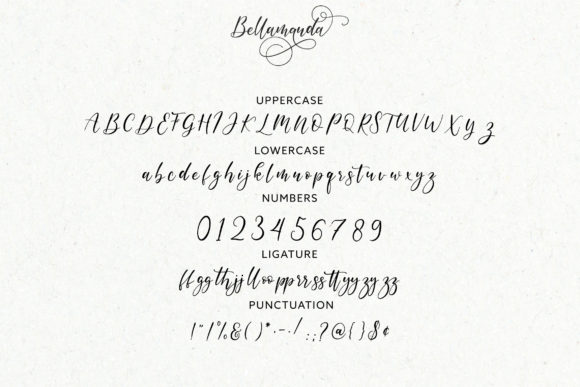 Bellamanda
UPPERCASE
A B C D E F G H I J K L M N O P Q R S T U V W X Y Z
LOWERCASE
a b c d e f g h i j k l m n o p q r s t u v w x y z
NUMBERS
0 1 2 3 4 5 6 7 8 9
LIGATURE
ff gg th jj ll oo pp rr ss tt yy zy zz
PUNCTUATION
! " / % & ( ) * . - . / . : ; ? @ { } $ ¢